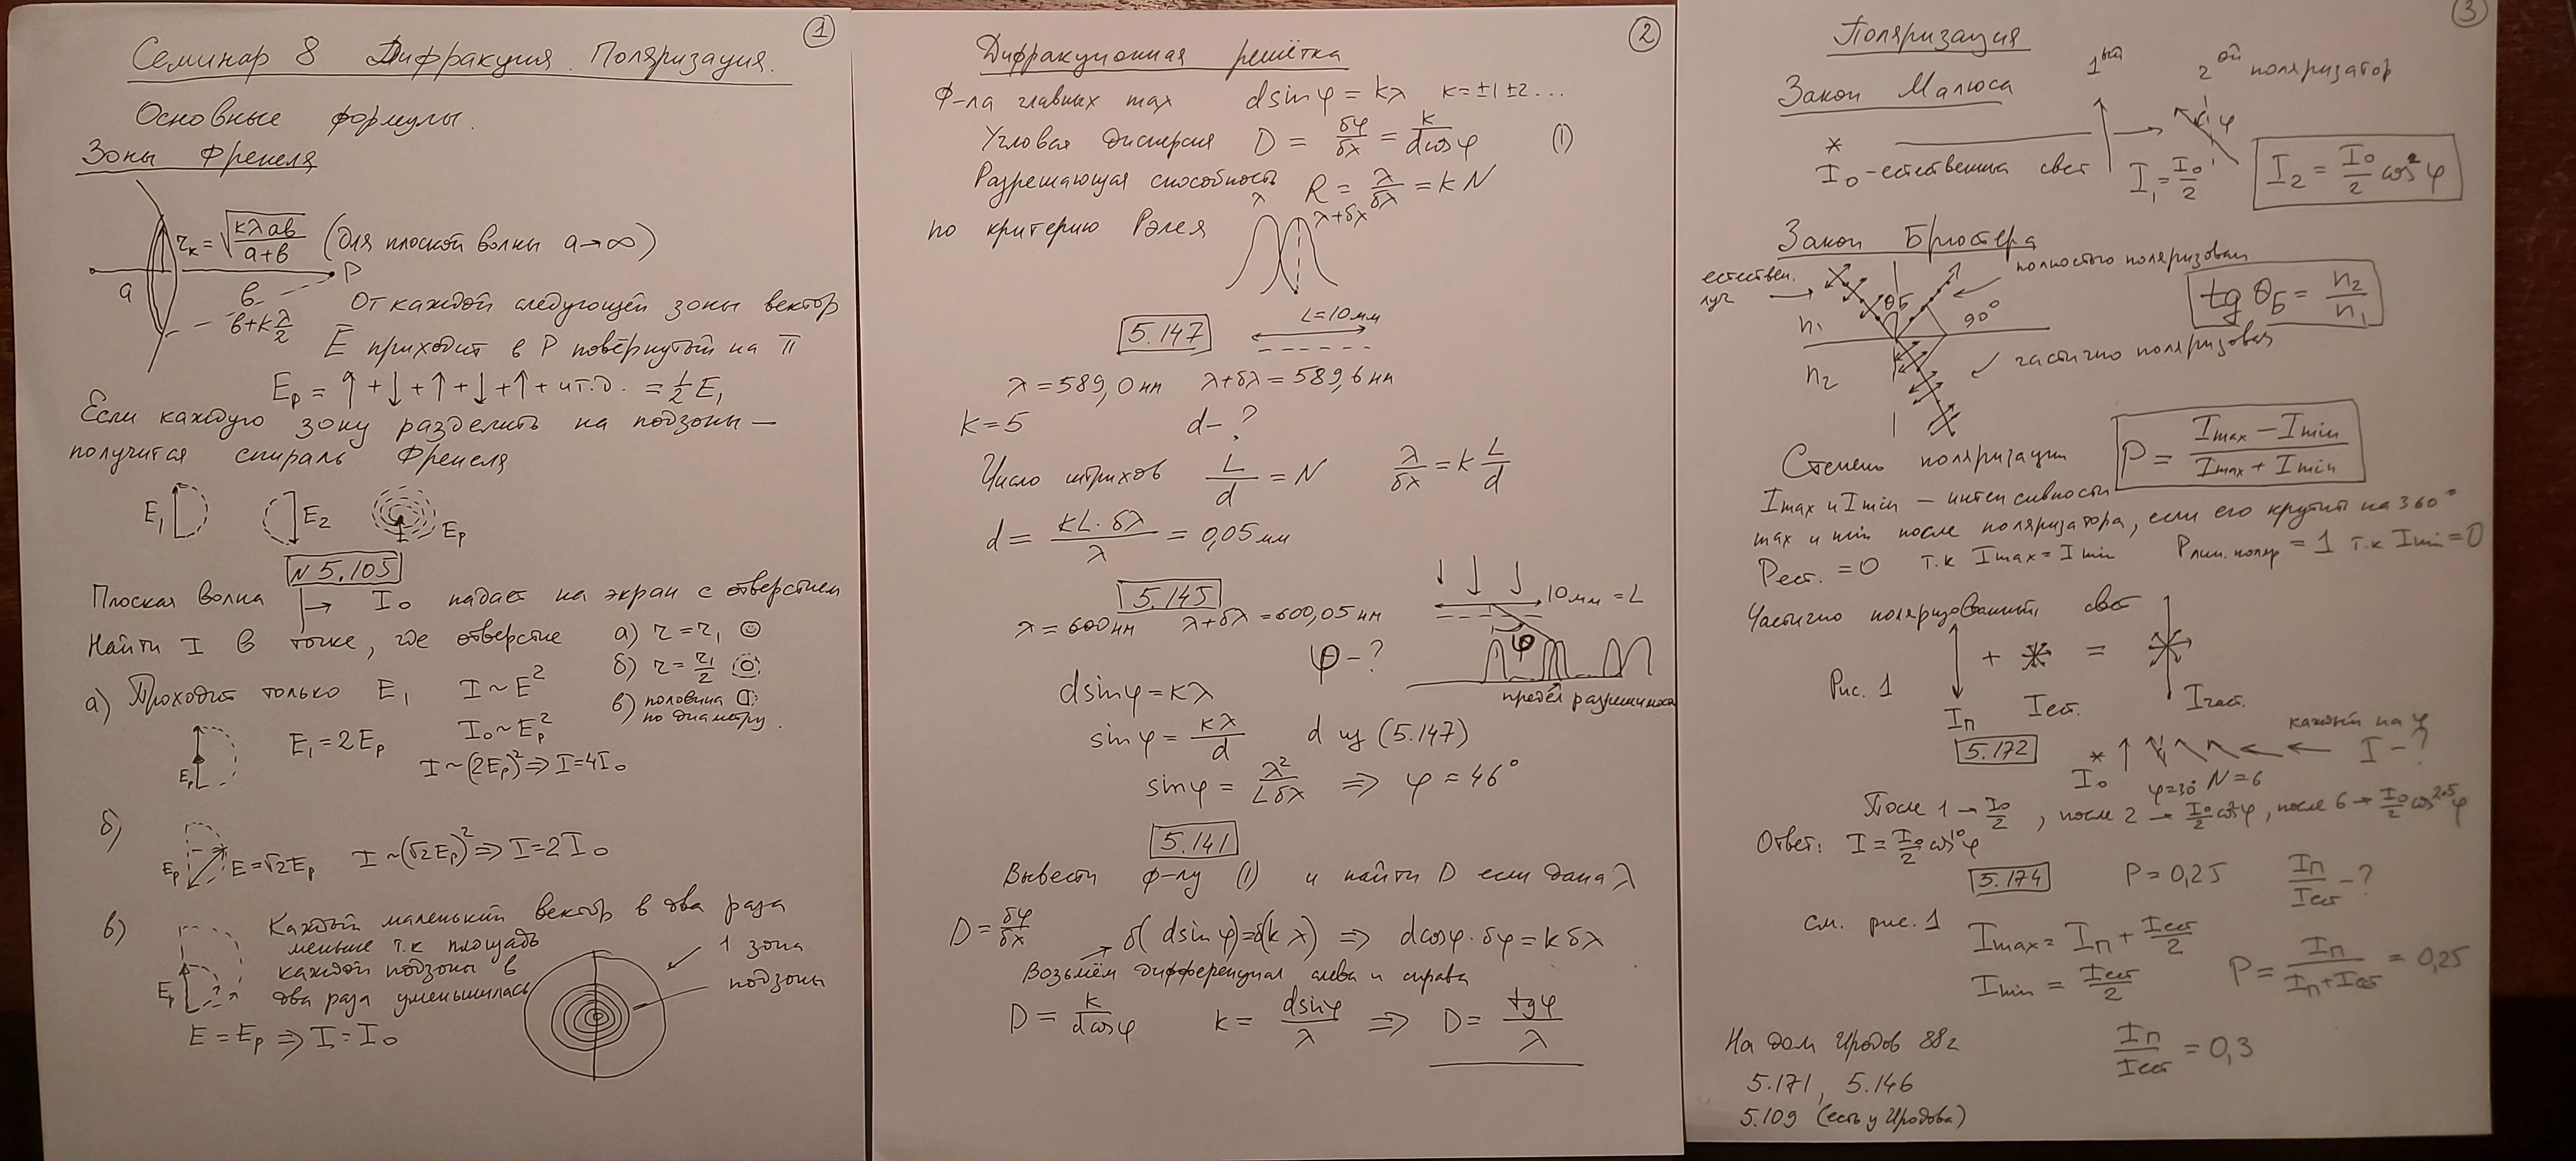 Семинар 8 Дифракция. Поляризация.
①
Основные формулы.
Зоны Френеля
r_k = √(kλab/(a+b)) (для плоской волны a→∞)
a
b
P
b+kλ/2
От каждой следующей зоны вектор
E приходит в P повёрнутый на π
E_p = ↑+↓+↑+↓+↑+ и т.д. = ½E₁
Если каждую зону разделить на подзоны —
получится спираль Френеля
E₁
E₂
E_p
N 5.105
Плоская волна I₀ падает на экран с отверстием
Найти I в точке, где отверстие а) r = r₁
б) r = r₁/2
в) половина
по диаметру.
а) Проходит только E₁ I ~ E²
E₁ = 2E_p I₀ ~ E_p²
E_p
I ~ (2E_p)² ⇒ I = 4I₀
б)
E_p E = √2E_p I ~ (√2E_p)² ⇒ I = 2I₀
в)
Каждый маленький вектор в два раза
меньше т.к площадь
каждой подзоны в
два раза уменьшилась
E_p
E = E_p ⇒ I = I₀
1 зона
подзоны
Дифракционная решётка
②
Ф-ла главных max dsinφ = kλ k = ±1 ±2 ...
Угловая дисперсия D = δφ/δλ = k/dcosφ (1)
Разрешающая способность R = λ/δλ = kN
по критерию Рэлея
λ λ+δλ
5.147
L=10мм
λ = 589,0 нм λ+δλ = 589,6 нм
k = 5 d - ?
Число штрихов L/d = N λ/δλ = k L/d
d = kL·δλ/λ = 0,05 мм
5.145
λ = 600 нм λ+δλ = 600,05 нм
10мм = L
φ - ?
φ
предел разрешения
dsinφ = kλ
sinφ = kλ/d d из (5.147)
sinφ = λ²/Lδλ ⇒ φ = 46°
5.141
Вывести ф-лу (1) и найти D если дана λ
D = δφ/δλ → δ(dsinφ) = δ(kλ) ⇒ dcosφ·δφ = kδλ
Возьмём дифференциал слева и справа
D = k/dcosφ k = dsinφ/λ ⇒ D = tgφ/λ
Поляризация
③
Закон Малюса 1ый 2ой поляризатор
φ
I₀ - естественный свет I₁ = I₀/2 I₂ = I₀/2 cos²φ
Закон Брюстера
естествен.
луч
полностью поляризован
θ_Б
n₁
n₂
90°
tgθ_Б = n₂/n₁
частично поляризован
Степень поляризации P = (Imax − Imin)/(Imax + Imin)
Imax и Imin – интенсивности
max и min после поляризатора, если его крутить на 360°
Pест. = 0 т.к Imax = Imin = 1 т.к Imin = 0
Частично поляризованный свет
Рис. 1
+ =
Iп Iест. Iчаст.
5.172
I₀ φ=30° N=6
каждый на φ
I - ?
После 1 → I₀/2, после 2 → I₀/2 cos²φ, после 6 → I₀/2 cos²·⁵φ
Ответ: I = I₀/2 cos¹⁰φ
5.174 P = 0,25 Iп/Iест - ?
см. рис. 1 Imax = Iп + Iест/2
Imin = Iест/2 P = Iп/(Iп+Iест) = 0,25
Iп/Iест = 0,3
На дом Иродов 88г
5.171, 5.146
5.109 (есть у Иродова)